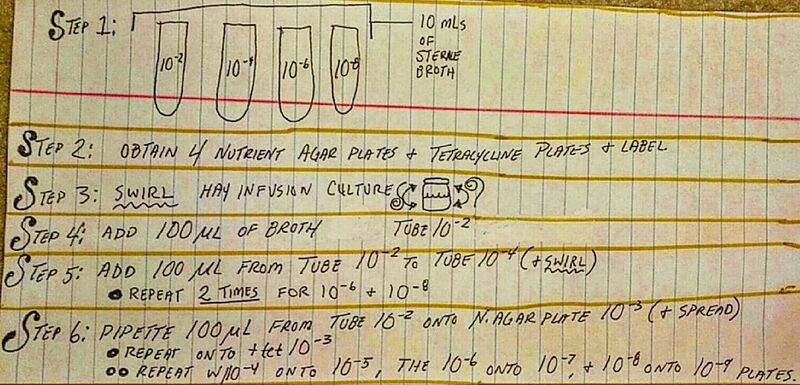 STEP 1:
10⁻² 10⁻⁴ 10⁻⁶ 10⁻⁸
10 MLs
OF
STERILE
BROTH
STEP 2: OBTAIN 4 NUTRIENT AGAR PLATES + TETRACYCLINE PLATES + LABEL
STEP 3: SWIRL HAY INFUSION CULTURE
STEP 4: ADD 100 µL OF BROTH TUBE 10⁻²
STEP 5: ADD 100 µL FROM TUBE 10⁻² TO TUBE 10⁻⁴ (+ SWIRL)
• REPEAT 2 TIMES FOR 10⁻⁶ + 10⁻⁸
STEP 6: PIPETTE 100 µL FROM TUBE 10⁻² ONTO N. AGAR PLATE 10⁻³ (+ SPREAD)
• REPEAT ONTO + tet 10⁻³
•• REPEAT W/10⁻⁴ ONTO 10⁻⁵, THE 10⁻⁶ ONTO 10⁻⁷, + 10⁻⁸ ONTO 10⁻⁹ PLATES.